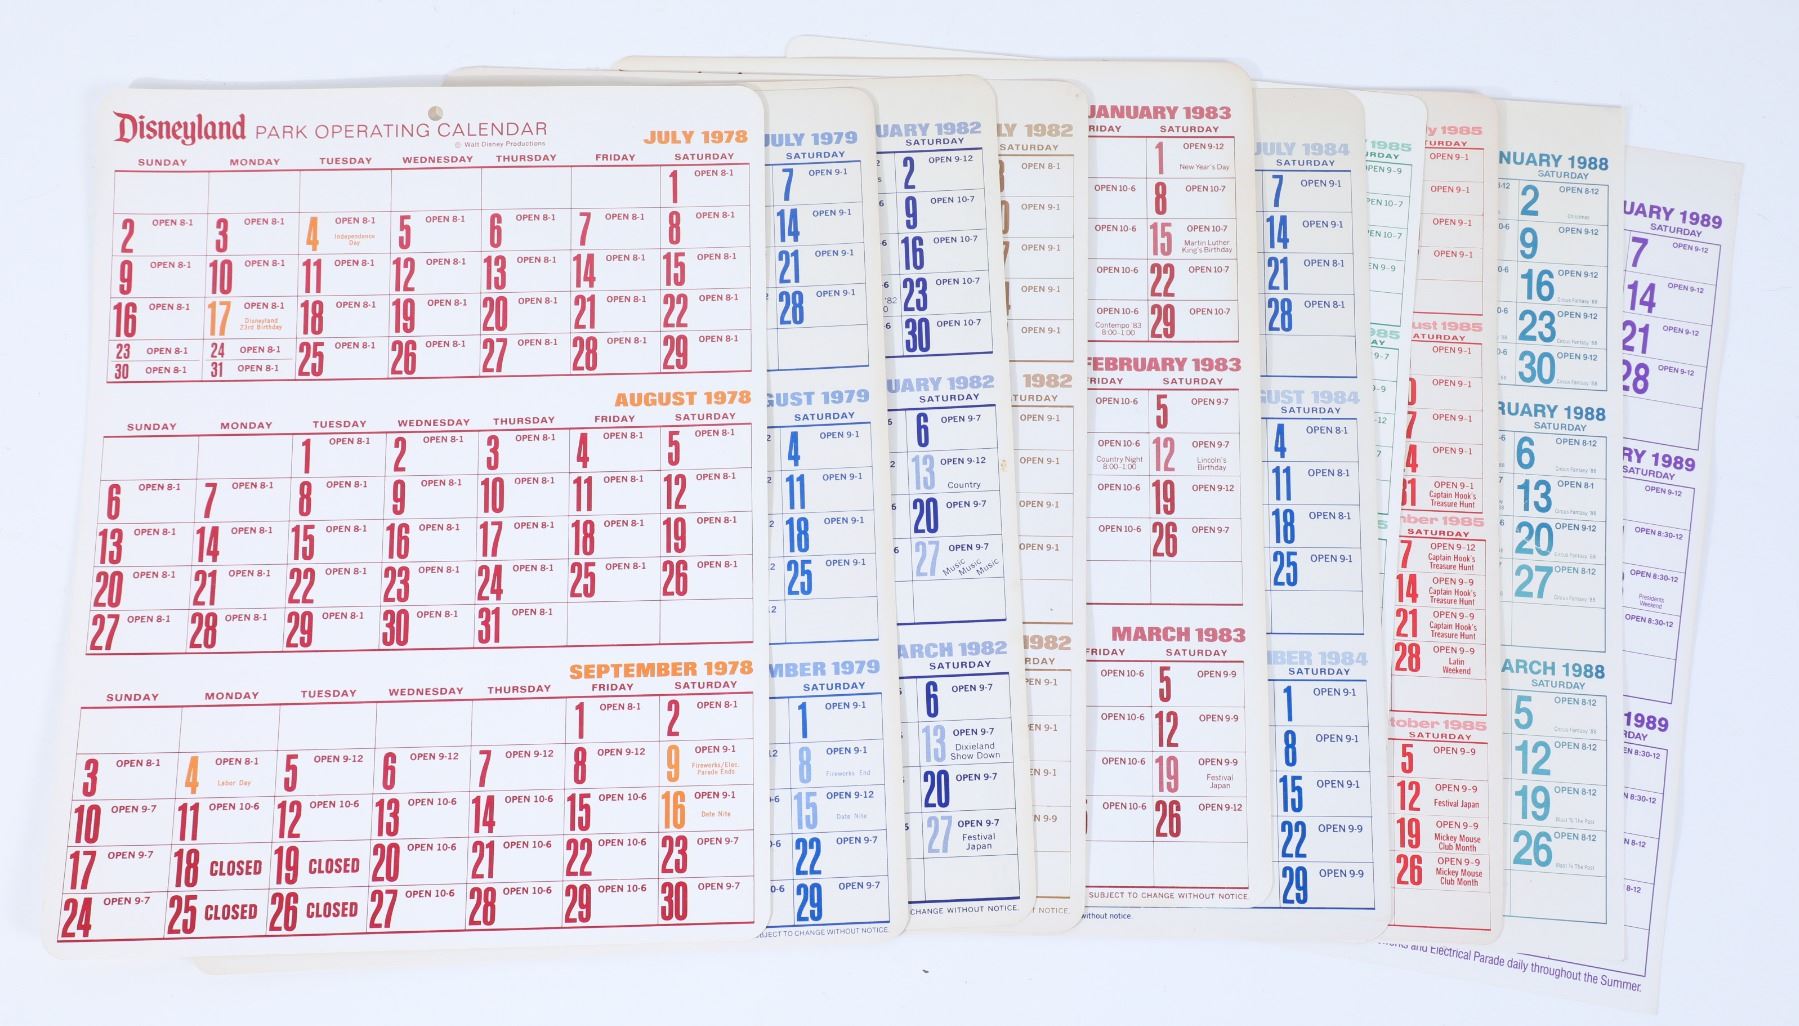 Disneyland PARK OPERATING CALENDAR
© Walt Disney Productions
JULY 1978
SUNDAY MONDAY TUESDAY WEDNESDAY THURSDAY FRIDAY SATURDAY
1 OPEN 8-1
2 OPEN 8-1 3 OPEN 8-1 4 OPEN 8-1 Independence Day 5 OPEN 8-1 6 OPEN 8-1 7 OPEN 8-1 8 OPEN 8-1
9 OPEN 8-1 10 OPEN 8-1 11 OPEN 8-1 12 OPEN 8-1 13 OPEN 8-1 14 OPEN 8-1 15 OPEN 8-1
16 OPEN 8-1 17 OPEN 8-1 Disneyland 23rd Birthday 18 OPEN 8-1 19 OPEN 8-1 20 OPEN 8-1 21 OPEN 8-1 22 OPEN 8-1
23 OPEN 8-1 24 OPEN 8-1 25 OPEN 8-1 26 OPEN 8-1 27 OPEN 8-1 28 OPEN 8-1 29 OPEN 8-1
30 OPEN 8-1 31 OPEN 8-1
AUGUST 1978
SUNDAY MONDAY TUESDAY WEDNESDAY THURSDAY FRIDAY SATURDAY
1 OPEN 8-1 2 OPEN 8-1 3 OPEN 8-1 4 OPEN 8-1 5 OPEN 8-1
6 OPEN 8-1 7 OPEN 8-1 8 OPEN 8-1 9 OPEN 8-1 10 OPEN 8-1 11 OPEN 8-1 12 OPEN 8-1
13 OPEN 8-1 14 OPEN 8-1 15 OPEN 8-1 16 OPEN 8-1 17 OPEN 8-1 18 OPEN 8-1 19 OPEN 8-1
20 OPEN 8-1 21 OPEN 8-1 22 OPEN 8-1 23 OPEN 8-1 24 OPEN 8-1 25 OPEN 8-1 26 OPEN 8-1
27 OPEN 8-1 28 OPEN 8-1 29 OPEN 8-1 30 OPEN 8-1 31 OPEN 8-1
SEPTEMBER 1978
SUNDAY MONDAY TUESDAY WEDNESDAY THURSDAY FRIDAY SATURDAY
1 OPEN 8-1 2 OPEN 8-1
3 OPEN 8-1 4 OPEN 8-1 Labor Day 5 OPEN 9-12 6 OPEN 9-12 7 OPEN 9-12 8 OPEN 9-12 9 OPEN 9-1 Fireworks/Elec. Parade Ends
10 OPEN 9-7 11 OPEN 10-6 12 OPEN 10-6 13 OPEN 10-6 14 OPEN 10-6 15 OPEN 10-6 16 OPEN 9-1 Date Nite
17 OPEN 9-7 18 CLOSED 19 CLOSED 20 OPEN 10-6 21 OPEN 10-6 22 OPEN 10-6 23 OPEN 9-7
24 OPEN 9-7 25 CLOSED 26 CLOSED 27 OPEN 10-6 28 OPEN 10-6 29 OPEN 10-6 30 OPEN 9-7
JULY 1979
SATURDAY
7 OPEN 9-1
14 OPEN 9-1
21 OPEN 9-1
28 OPEN 9-1
GUST 1979
SATURDAY
4 OPEN 9-1
11 OPEN 9-1
18 OPEN 9-1
25 OPEN 9-1
MBER 1979
SATURDAY
1 OPEN 9-1
8 OPEN 9-1
Fireworks End
15 OPEN 9-12
Date Nite
22 OPEN 9-7
29 OPEN 9-7
BJECT TO CHANGE WITHOUT NOTICE.
UARY 1982
SATURDAY
2 OPEN 9-12
9 OPEN 10-7
16 OPEN 10-7
23 OPEN 10-7
30 OPEN 10-7
UARY 1982
SATURDAY
6 OPEN 9-7
13 OPEN 9-12
Country
20 OPEN 9-7
27 OPEN 9-7
Music Music Music
ARCH 1982
SATURDAY
6 OPEN 9-7
13 OPEN 9-7
Dixieland
Show Down
20 OPEN 9-7
27 OPEN 9-7
Festival
Japan
CHANGE WITHOUT NOTICE.
LY 1982
SATURDAY
OPEN 8-1
OPEN 9-1
1982
TURDAY
OPEN 9-1
OPEN 9-1
OPEN 9-1
OPEN 9-1
1982
RDAY
EN 9-1
N 9-1
N 9-1
N 9-9
T NOTICE.
JANUARY 1983
RIDAY SATURDAY
1 OPEN 9-12
New Year's Day
OPEN 10-6 8 OPEN 10-7
OPEN 10-6 15 OPEN 10-7
Martin Luther
King's Birthday
OPEN 10-6 22 OPEN 10-7
OPEN 10-6 29 OPEN 10-7
Contempo '83
8:00-1:00
FEBRUARY 1983
RIDAY SATURDAY
OPEN 10-6 5 OPEN 9-7
OPEN 10-6 12 OPEN 9-7
Country Night Lincoln's
8:00-1:00 Birthday
OPEN 10-6 19 OPEN 9-12
OPEN 10-6 26 OPEN 9-7
MARCH 1983
FRIDAY SATURDAY
OPEN 10-6 5 OPEN 9-9
OPEN 10-6 12 OPEN 9-9
OPEN 10-6 19 OPEN 9-9
Festival
Japan
OPEN 10-6 26 OPEN 9-12
SUBJECT TO CHANGE WITHOUT NOTICE.
JULY 1984
SATURDAY
7 OPEN 9-1
14 OPEN 9-1
21 OPEN 8-1
28 OPEN 8-1
UST 1984
SATURDAY
4 OPEN 8-1
11 OPEN 8-1
18 OPEN 8-1
25 OPEN 9-1
BER 1984
SATURDAY
1 OPEN 9-1
8 OPEN 9-1
15 OPEN 9-1
22 OPEN 9-9
29 OPEN 9-9
without notice.
1985
RDAY
PEN 9-9
EN 10-7
N 10-7
N 9-9
985
AY
9-7
y 1985
TURDAY
OPEN 9-1
OPEN 9-1
OPEN 9-1
OPEN 9-1
ust 1985
ATURDAY
OPEN 9-1
OPEN 9-1
OPEN 9-1
OPEN 9-1
31 OPEN 9-1
Captain Hook's
Treasure Hunt
mber 1985
SATURDAY
7 OPEN 9-12
Captain Hook's
Treasure Hunt
14 OPEN 9-9
Captain Hook's
Treasure Hunt
21 OPEN 9-9
Captain Hook's
Treasure Hunt
28 OPEN 9-9
Latin
Weekend
tober 1985
SATURDAY
5 OPEN 9-9
12 OPEN 9-9
Festival Japan
19 OPEN 9-9
Mickey Mouse
Club Month
26 OPEN 9-9
Mickey Mouse
Club Month
NUARY 1988
SATURDAY
2 OPEN 8-12
9 OPEN 9-12
16 OPEN 9-12
Circus Fantasy '88
23 OPEN 9-12
Circus Fantasy '88
30 OPEN 9-12
Circus Fantasy '88
RUARY 1988
SATURDAY
6 OPEN 8-12
Circus Fantasy '88
13 OPEN 8-1
Circus Fantasy '88
20 OPEN 9-12
Circus Fantasy '88
27 OPEN 8-12
Circus Fantasy '88
ARCH 1988
SATURDAY
5 OPEN 8-12
Circus Fantasy '88
12 OPEN 8-12
19 OPEN 8-12
Blast To The Past
26 OPEN 8-12
Blast To The Past
UARY 1989
SATURDAY
7 OPEN 9-12
14 OPEN 9-12
21 OPEN 9-12
28 OPEN 9-12
RY 1989
SATURDAY
OPEN 9-12
OPEN 8:30-12
OPEN 8:30-12
Presidents
Weekend
OPEN 8:30-12
1989
RDAY
8:30-12
N 8:30-12
8-12
8-12
works and Electrical Parade daily throughout the Summer.